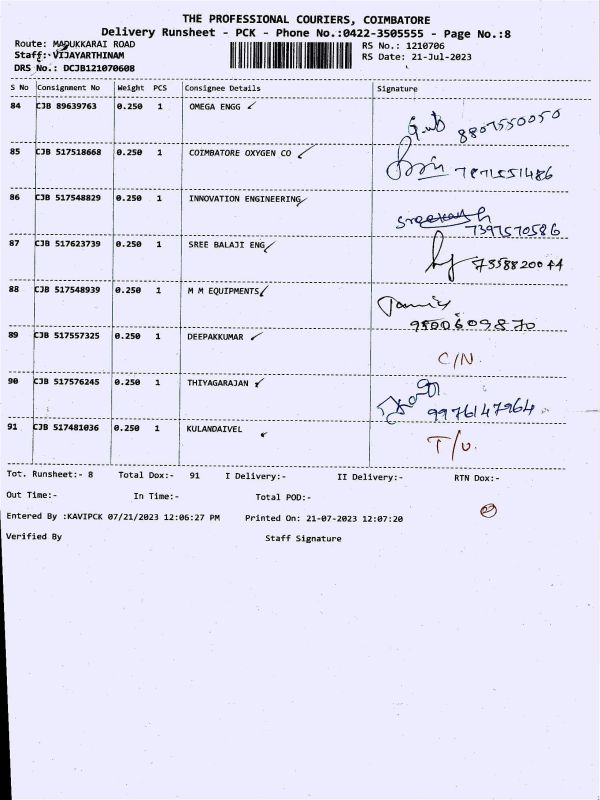 THE PROFESSIONAL COURIERS, COIMBATORE
Delivery Runsheet - PCK - Phone No.:0422-3505555 - Page No.:8
Route: MADUKKARAI ROAD RS No.: 1210706
Staff: VIJAYARTHINAM RS Date: 21-Jul-2023
DRS No.: DCJB121070608
S No Consignment No Weight PCS Consignee Details Signature
84 CJB 89639763 0.250 1 OMEGA ENGG
8807550050
85 CJB 517518668 0.250 1 COIMBATORE OXYGEN CO
7871551486
86 CJB 517548829 0.250 1 INNOVATION ENGINEERING
7397570586
87 CJB 517623739 0.250 1 SREE BALAJI ENG
7358820044
88 CJB 517548939 0.250 1 M M EQUIPMENTS
9500609870
89 CJB 517557325 0.250 1 DEEPAKKUMAR
C/N.
90 CJB 517576245 0.250 1 THIYAGARAJAN
9976147964
91 CJB 517481036 0.250 1 KULANDAIVEL
T/U.
Tot. Runsheet:- 8 Total Dox:- 91 I Delivery:- II Delivery:- RTN Dox:-
Out Time:- In Time:- Total POD:-
Entered By :KAVIPCK 07/21/2023 12:06:27 PM Printed On: 21-07-2023 12:07:20
Verified By Staff Signature